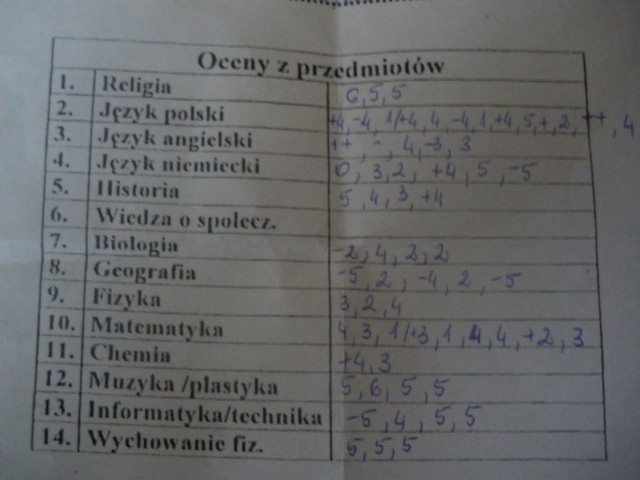 Oceny z przedmiotów
1. Religia 6, 5, 5
2. Język polski +4, -4, 1/+4, 4, -4, 1, +4, 5, +, 2, ++, 4
3. Język angielski ++, -, 4, -3, 3
4. Język niemiecki 0, 3, 2, +4, 5, -5
5. Historia 5, 4, 3, +4
6. Wiedza o społecz.
7. Biologia -2, 4, 2, 2
8. Geografia -5, 2, -4, 2, -5
9. Fizyka 3, 2, 4
10. Matematyka 4, 3, 1/+3, 1, 4, 4, +2, 3
11. Chemia +4, 3
12. Muzyka /plastyka 5, 6, 5, 5
13. Informatyka/technika -5, 4, 5, 5
14. Wychowanie fiz. 5, 5, 5